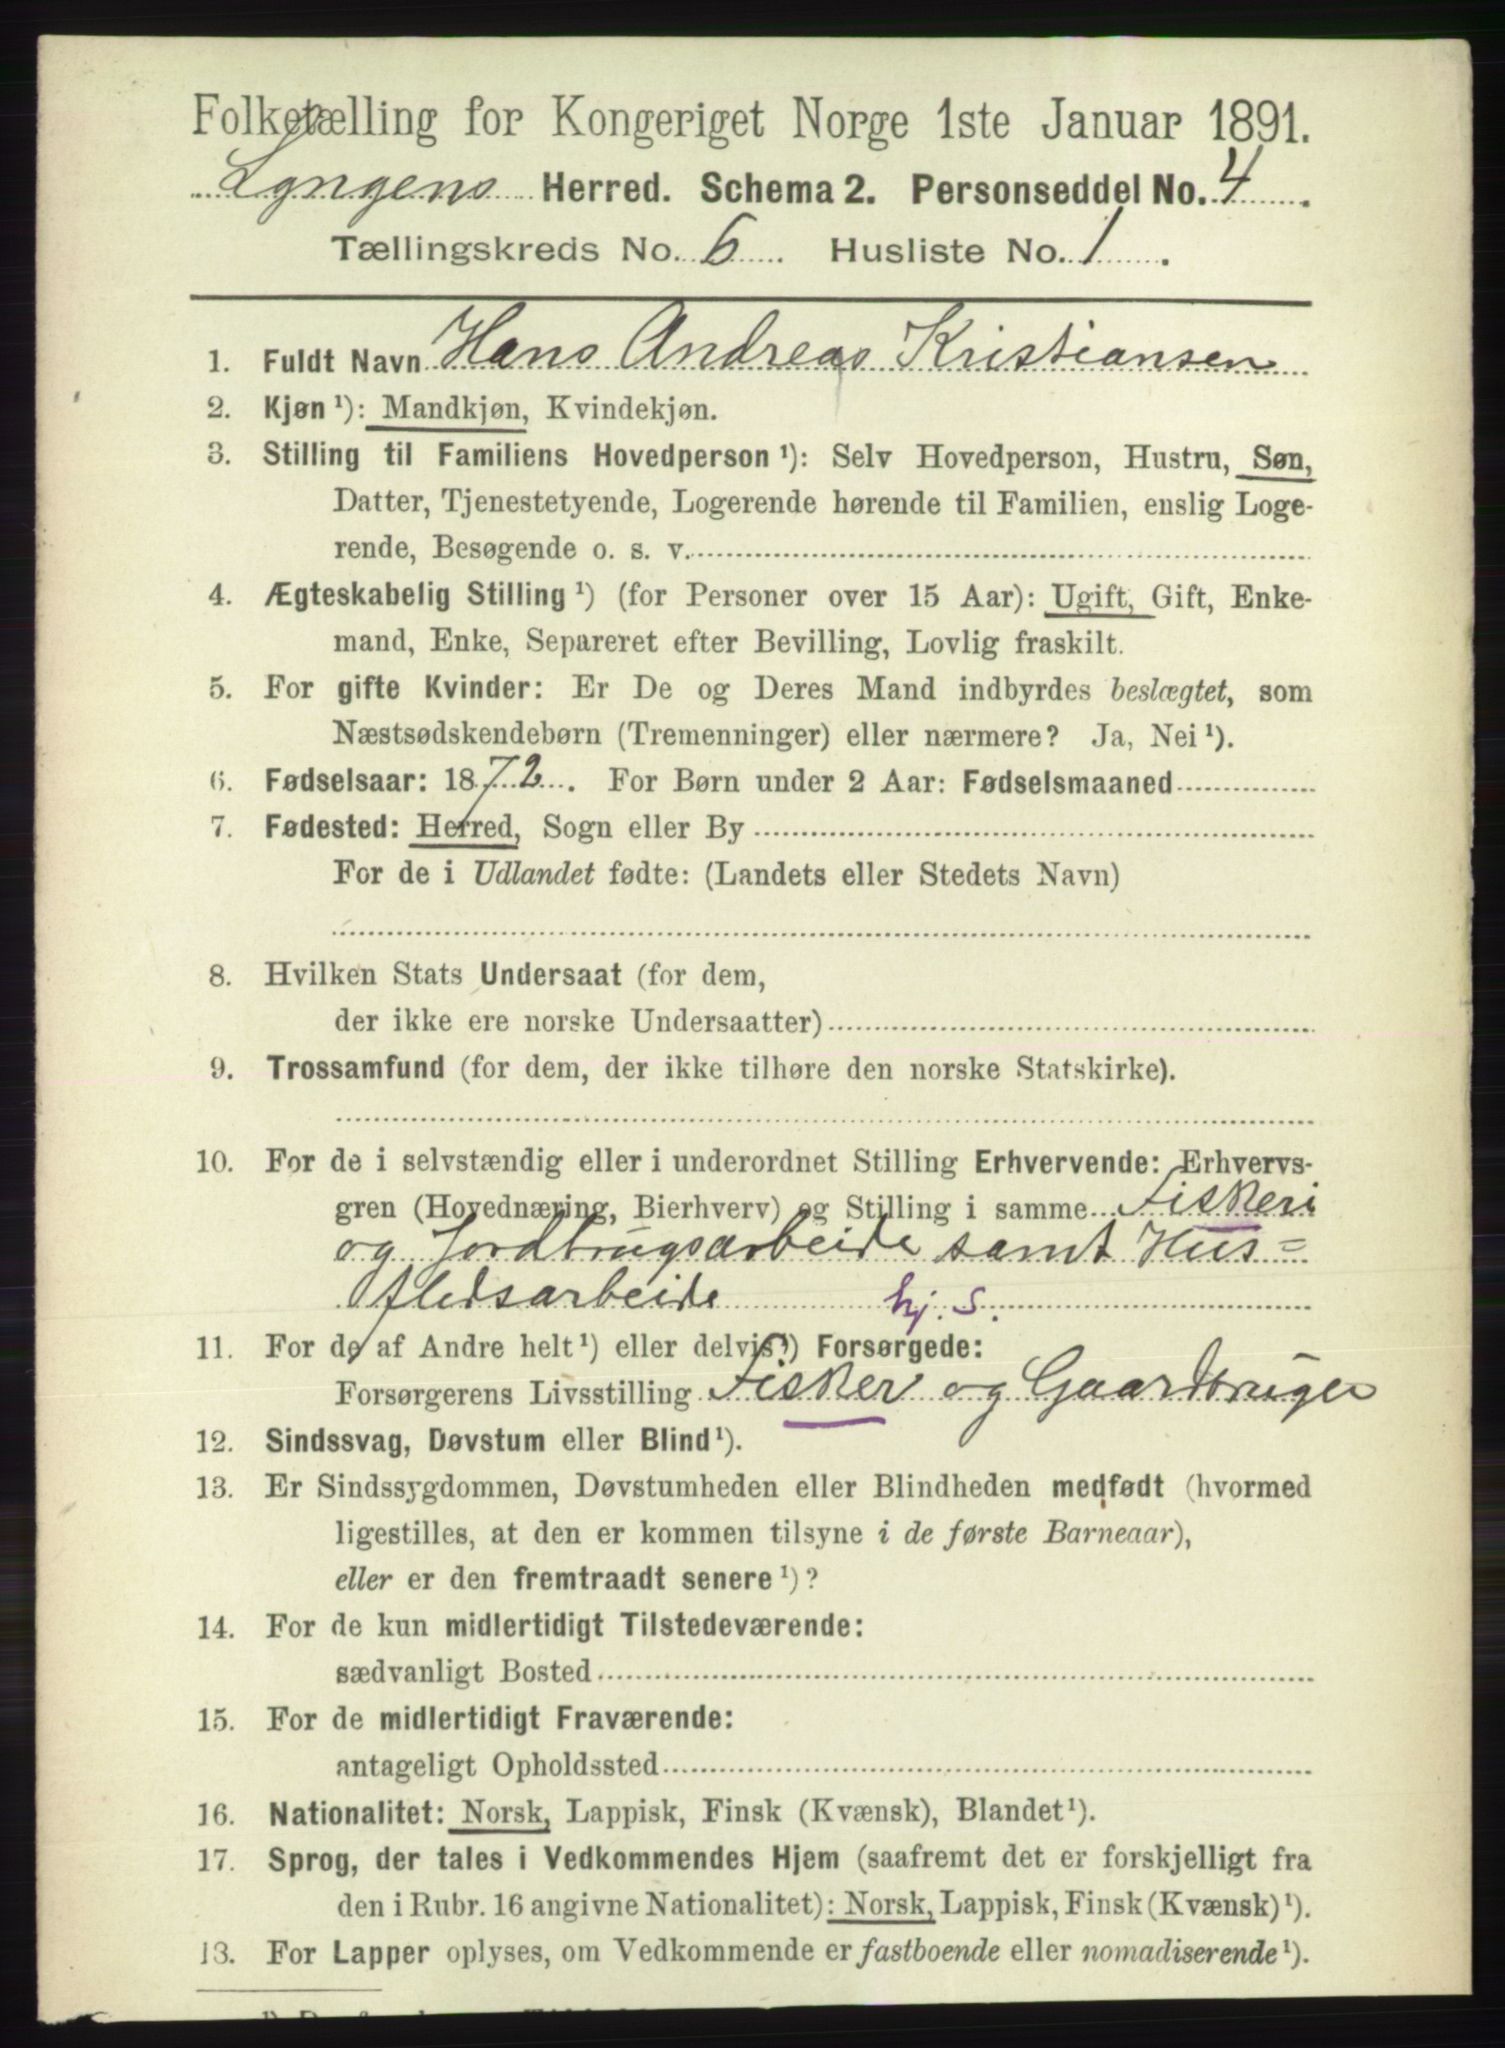 Folketælling for Kongeriget Norge 1ste Januar 1891.
Lyngens Herred. Schema 2. Personseddel No. 4
Tællingskreds No. 6 Husliste No. 1
1. Fuldt Navn Hans Andreas Kristiansen
2. Kjøn¹): Mandkjøn, Kvindekjøn.
3. Stilling til Familiens Hovedperson¹): Selv Hovedperson, Hustru, Søn,
Datter, Tjenestetyende, Logerende hørende til Familien, enslig Loge-
rende, Besøgende o. s. v.
4. Ægteskabelig Stilling¹) (for Personer over 15 Aar): Ugift, Gift, Enke-
mand, Enke, Separeret efter Bevilling, Lovlig fraskilt.
5. For gifte Kvinder: Er De og Deres Mand indbyrdes beslægtet, som
Næstsødskendebørn (Tremenninger) eller nærmere? Ja, Nei¹).
6. Fødselsaar: 1872. For Børn under 2 Aar: Fødselsmaaned
7. Fødested: Herred, Sogn eller By
For de i Udlandet fødte: (Landets eller Stedets Navn)
8. Hvilken Stats Undersaat (for dem,
der ikke ere norske Undersaatter)
9. Trossamfund (for dem, der ikke tilhøre den norske Statskirke).
10. For de i selvstændig eller i underordnet Stilling Erhvervende: Erhvervs-
gren (Hovednæring, Bierhverv) og Stilling i samme Fiskeri
og Jordbrugsarbeide samt Hus=
flidsarbeide hj. s.
11. For de af Andre helt¹) eller delvis¹) Forsørgede:
Forsørgerens Livsstilling Fisker og Gaardbruger
12. Sindssvag, Døvstum eller Blind¹).
13. Er Sindssygdommen, Døvstumheden eller Blindheden medfødt (hvormed
ligestilles, at den er kommen tilsyne i de første Barneaar),
eller er den fremtraadt senere¹)?
14. For de kun midlertidigt Tilstedeværende:
sædvanligt Bosted
15. For de midlertidigt Fraværende:
antageligt Opholdssted
16. Nationalitet: Norsk, Lappisk, Finsk (Kvænsk), Blandet¹).
17. Sprog, der tales i Vedkommendes Hjem (saafremt det er forskjelligt fra
den i Rubr. 16 angivne Nationalitet): Norsk, Lappisk, Finsk (Kvænsk)¹).
13. For Lapper oplyses, om Vedkommende er fastboende eller nomadiserende¹).